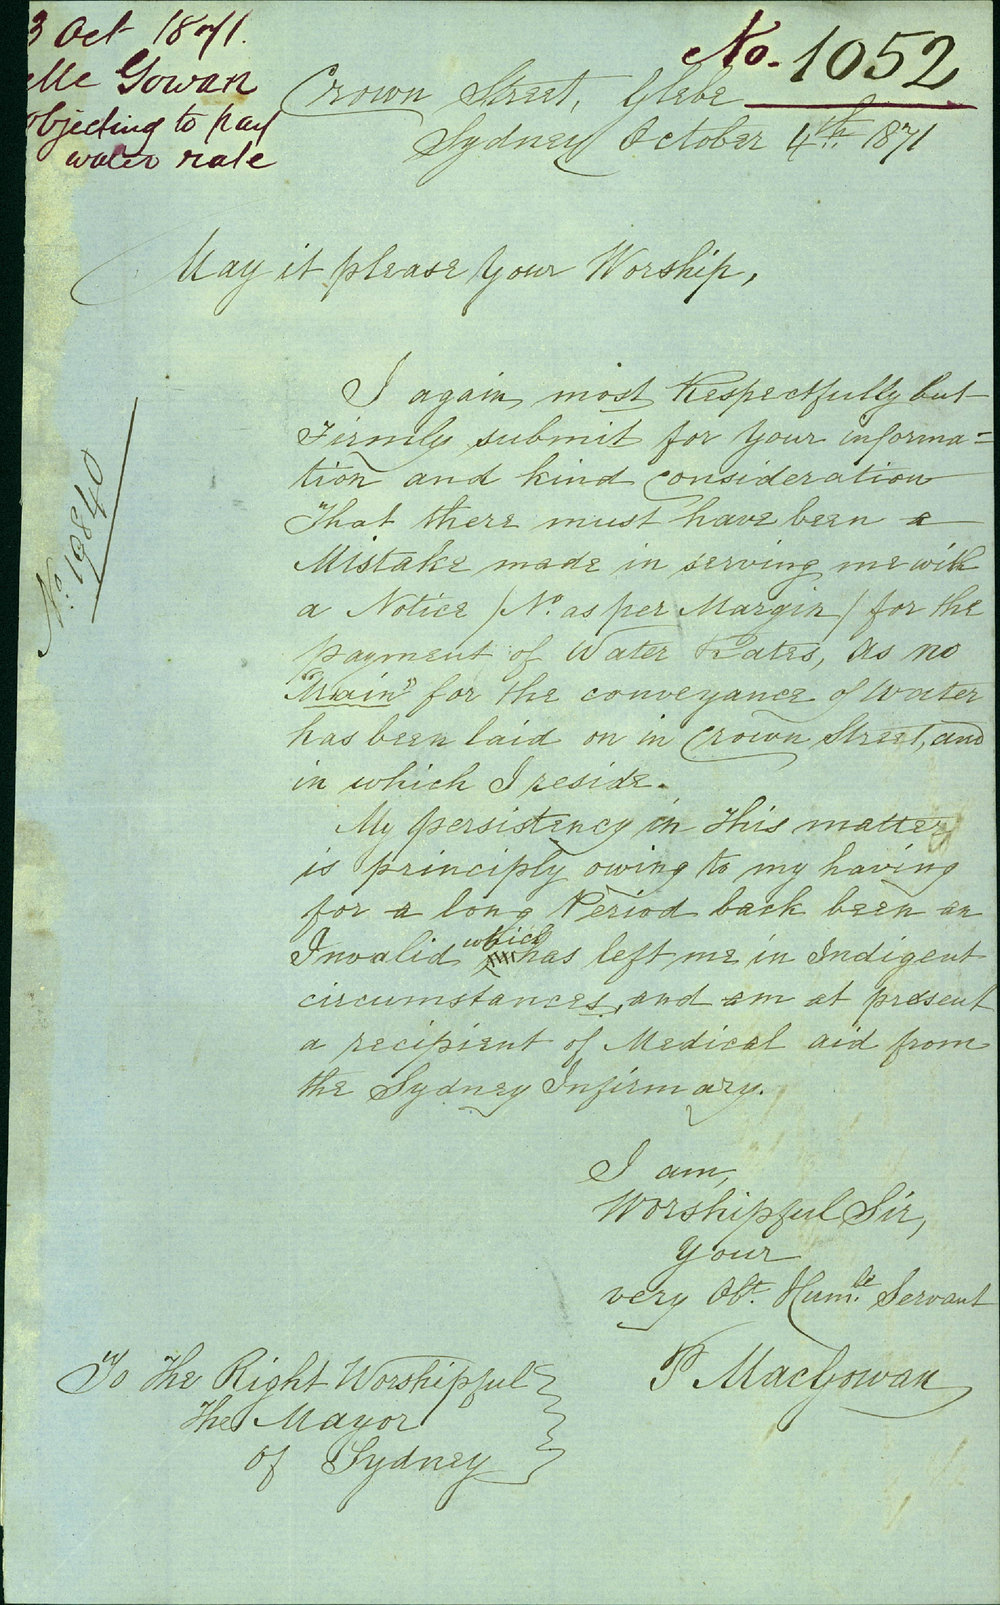 3 Oct 1871.
McGowan
objecting to pay
water rate
No. 1052
Crown Street, Glebe
Sydney October 4th. 1871
May it please Your Worship,
I again, most Respectfully but
Firmly submit for Your informa=
tion and kind consideration
That there must have been a
Mistake made in serving me with
a Notice (No. as per Margin) for the
payment of Water Rates, As no
"Main" for the conveyance of Water
has been laid on in Crown Street, and
in which I reside.
No. 19840
My persistency in this matter
is principly owing to my having
for a long Period back been an
Invalid which has left me in Indigent
circumstances, and am at present
a recipient of Medical aid from
the Sydney Infirmary.
I am,
Worshipful Sir,
Your
very Obt. Humble Servant
P MacGowan
To The Right Worshipful
The Mayor
of Sydney